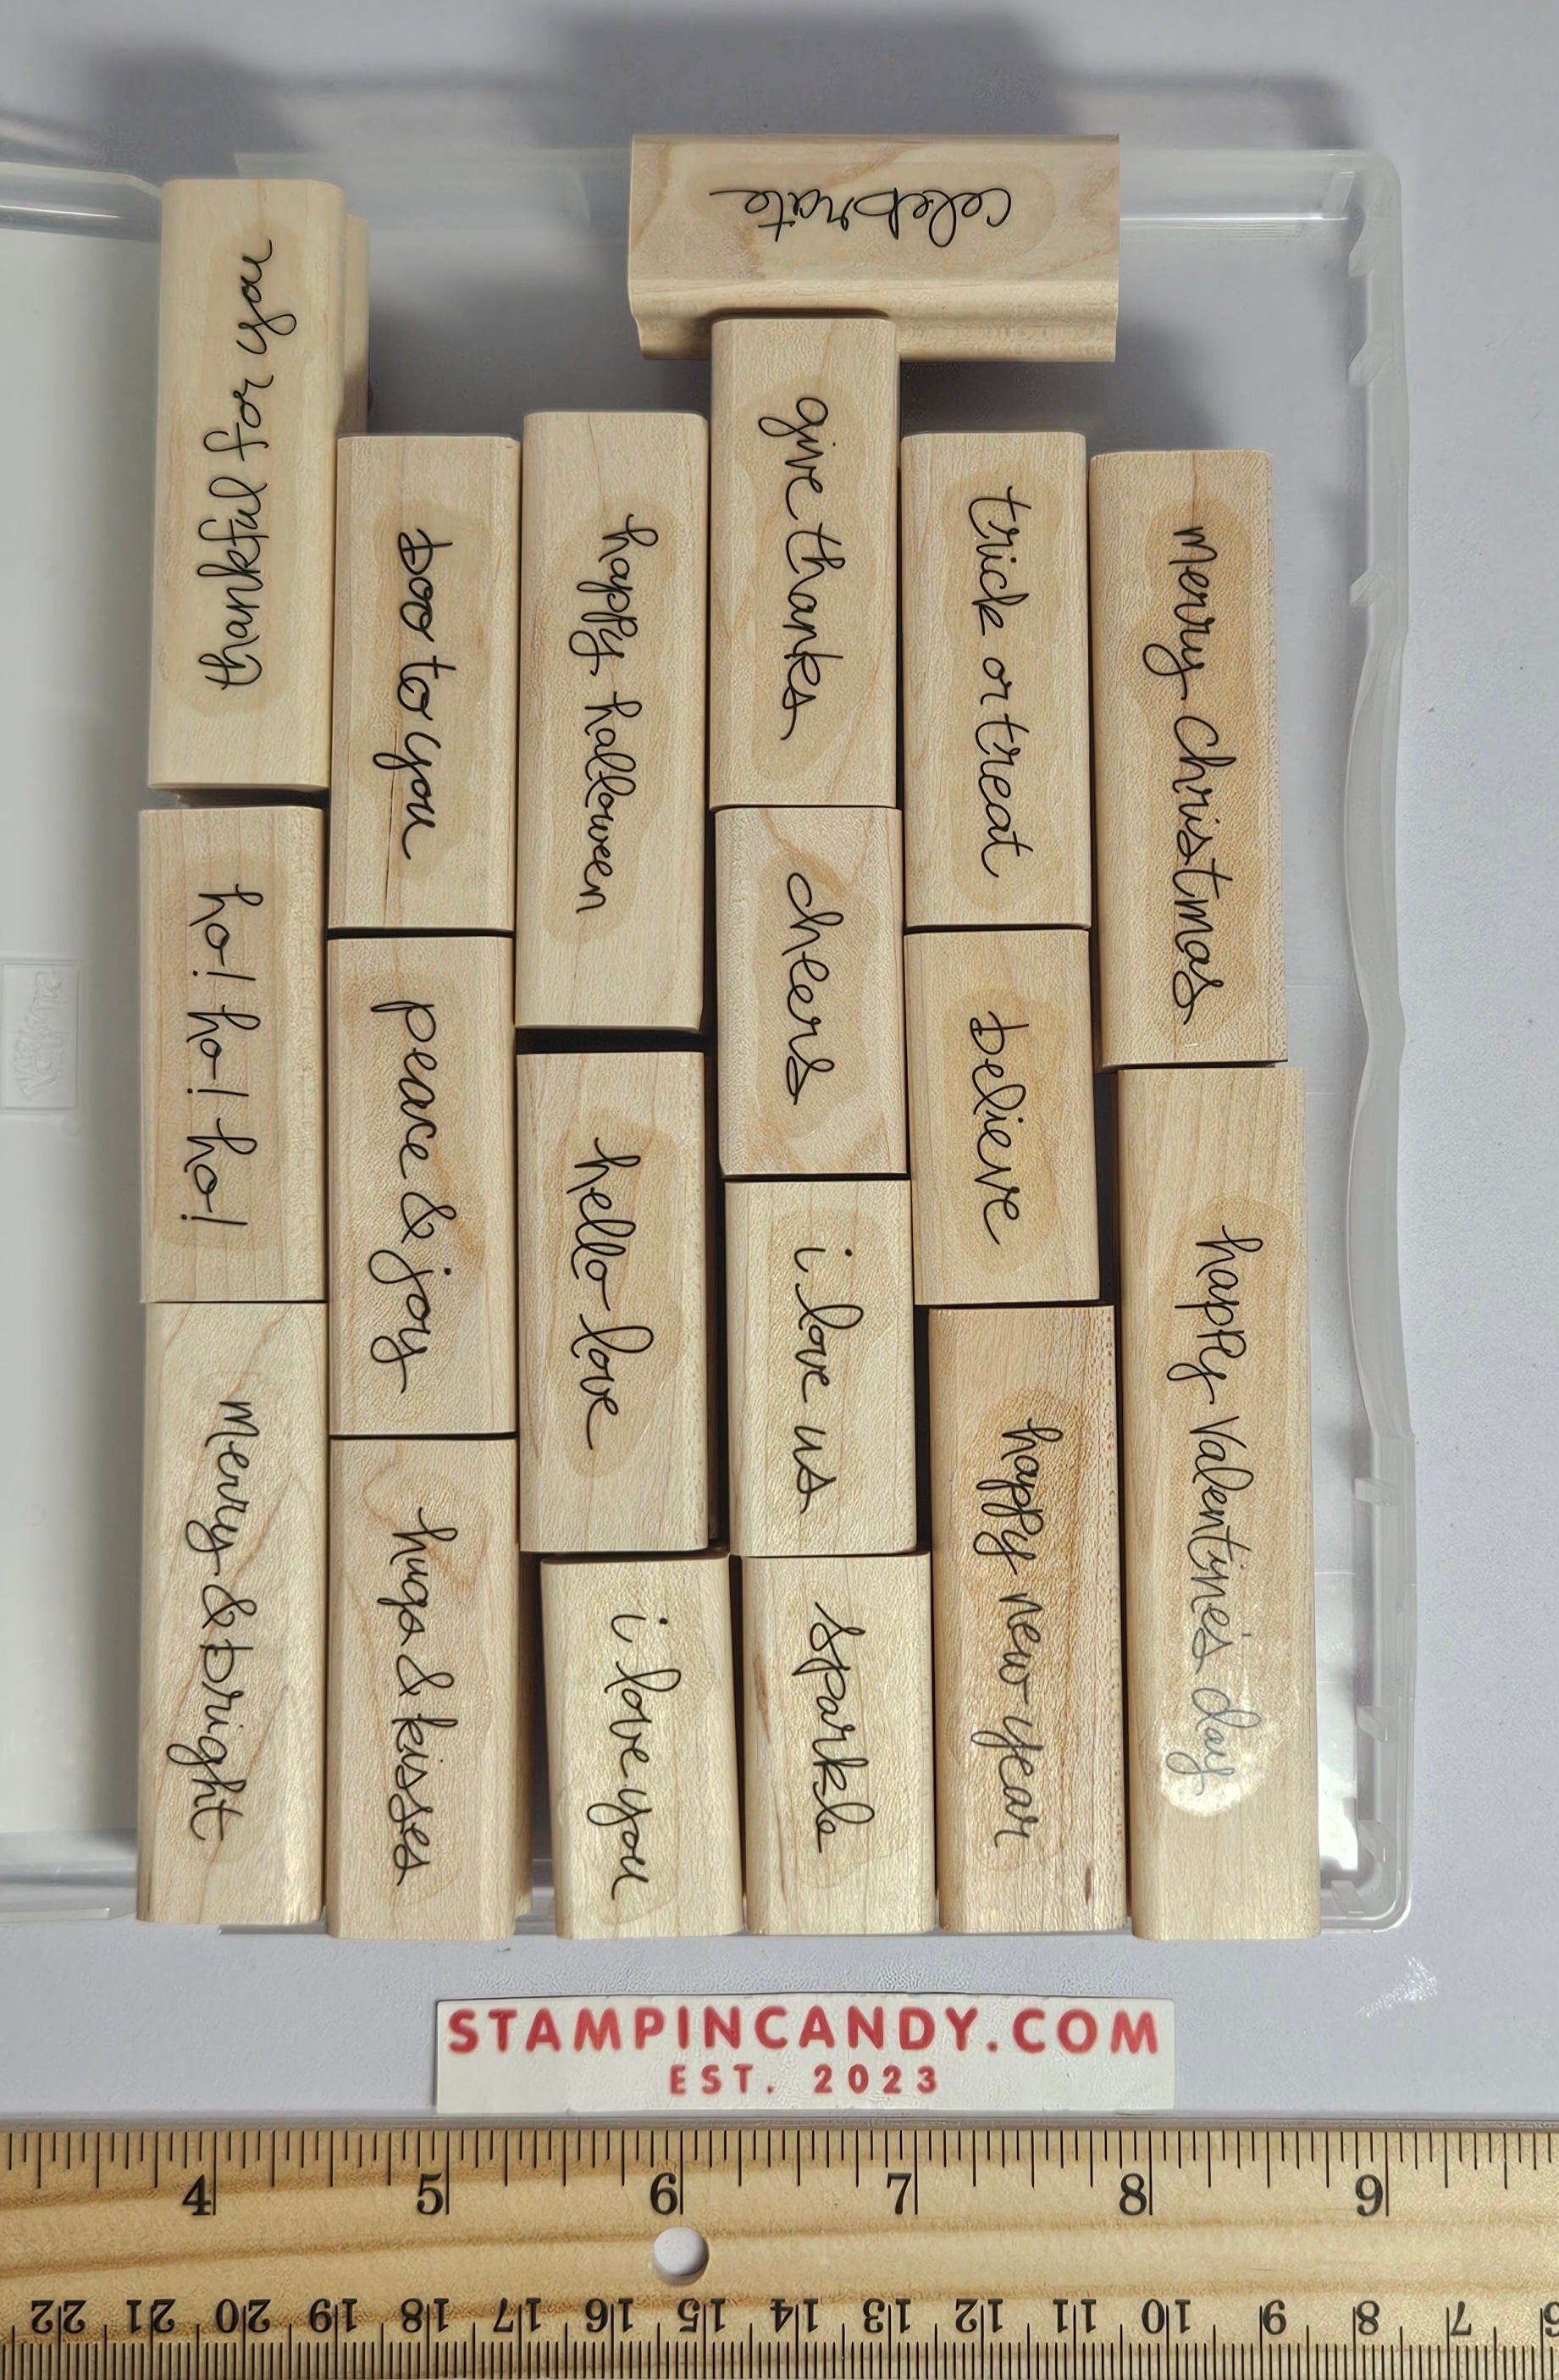 celebrate
thankful for you
ho! ho! ho!
merry & bright
boo to you
peace & joy
hugs & kisses
happy halloween
hello love
i love you
give thanks
cheers
i love us
sparkle
trick or treat
believe
happy new year
merry christmas
happy valentine's day
STAMPINCANDY.COM
EST. 2023
4 5 6 7 8 9
22 21 20 19 18 17 16 15 14 13 12 11 10 9 8 7 6